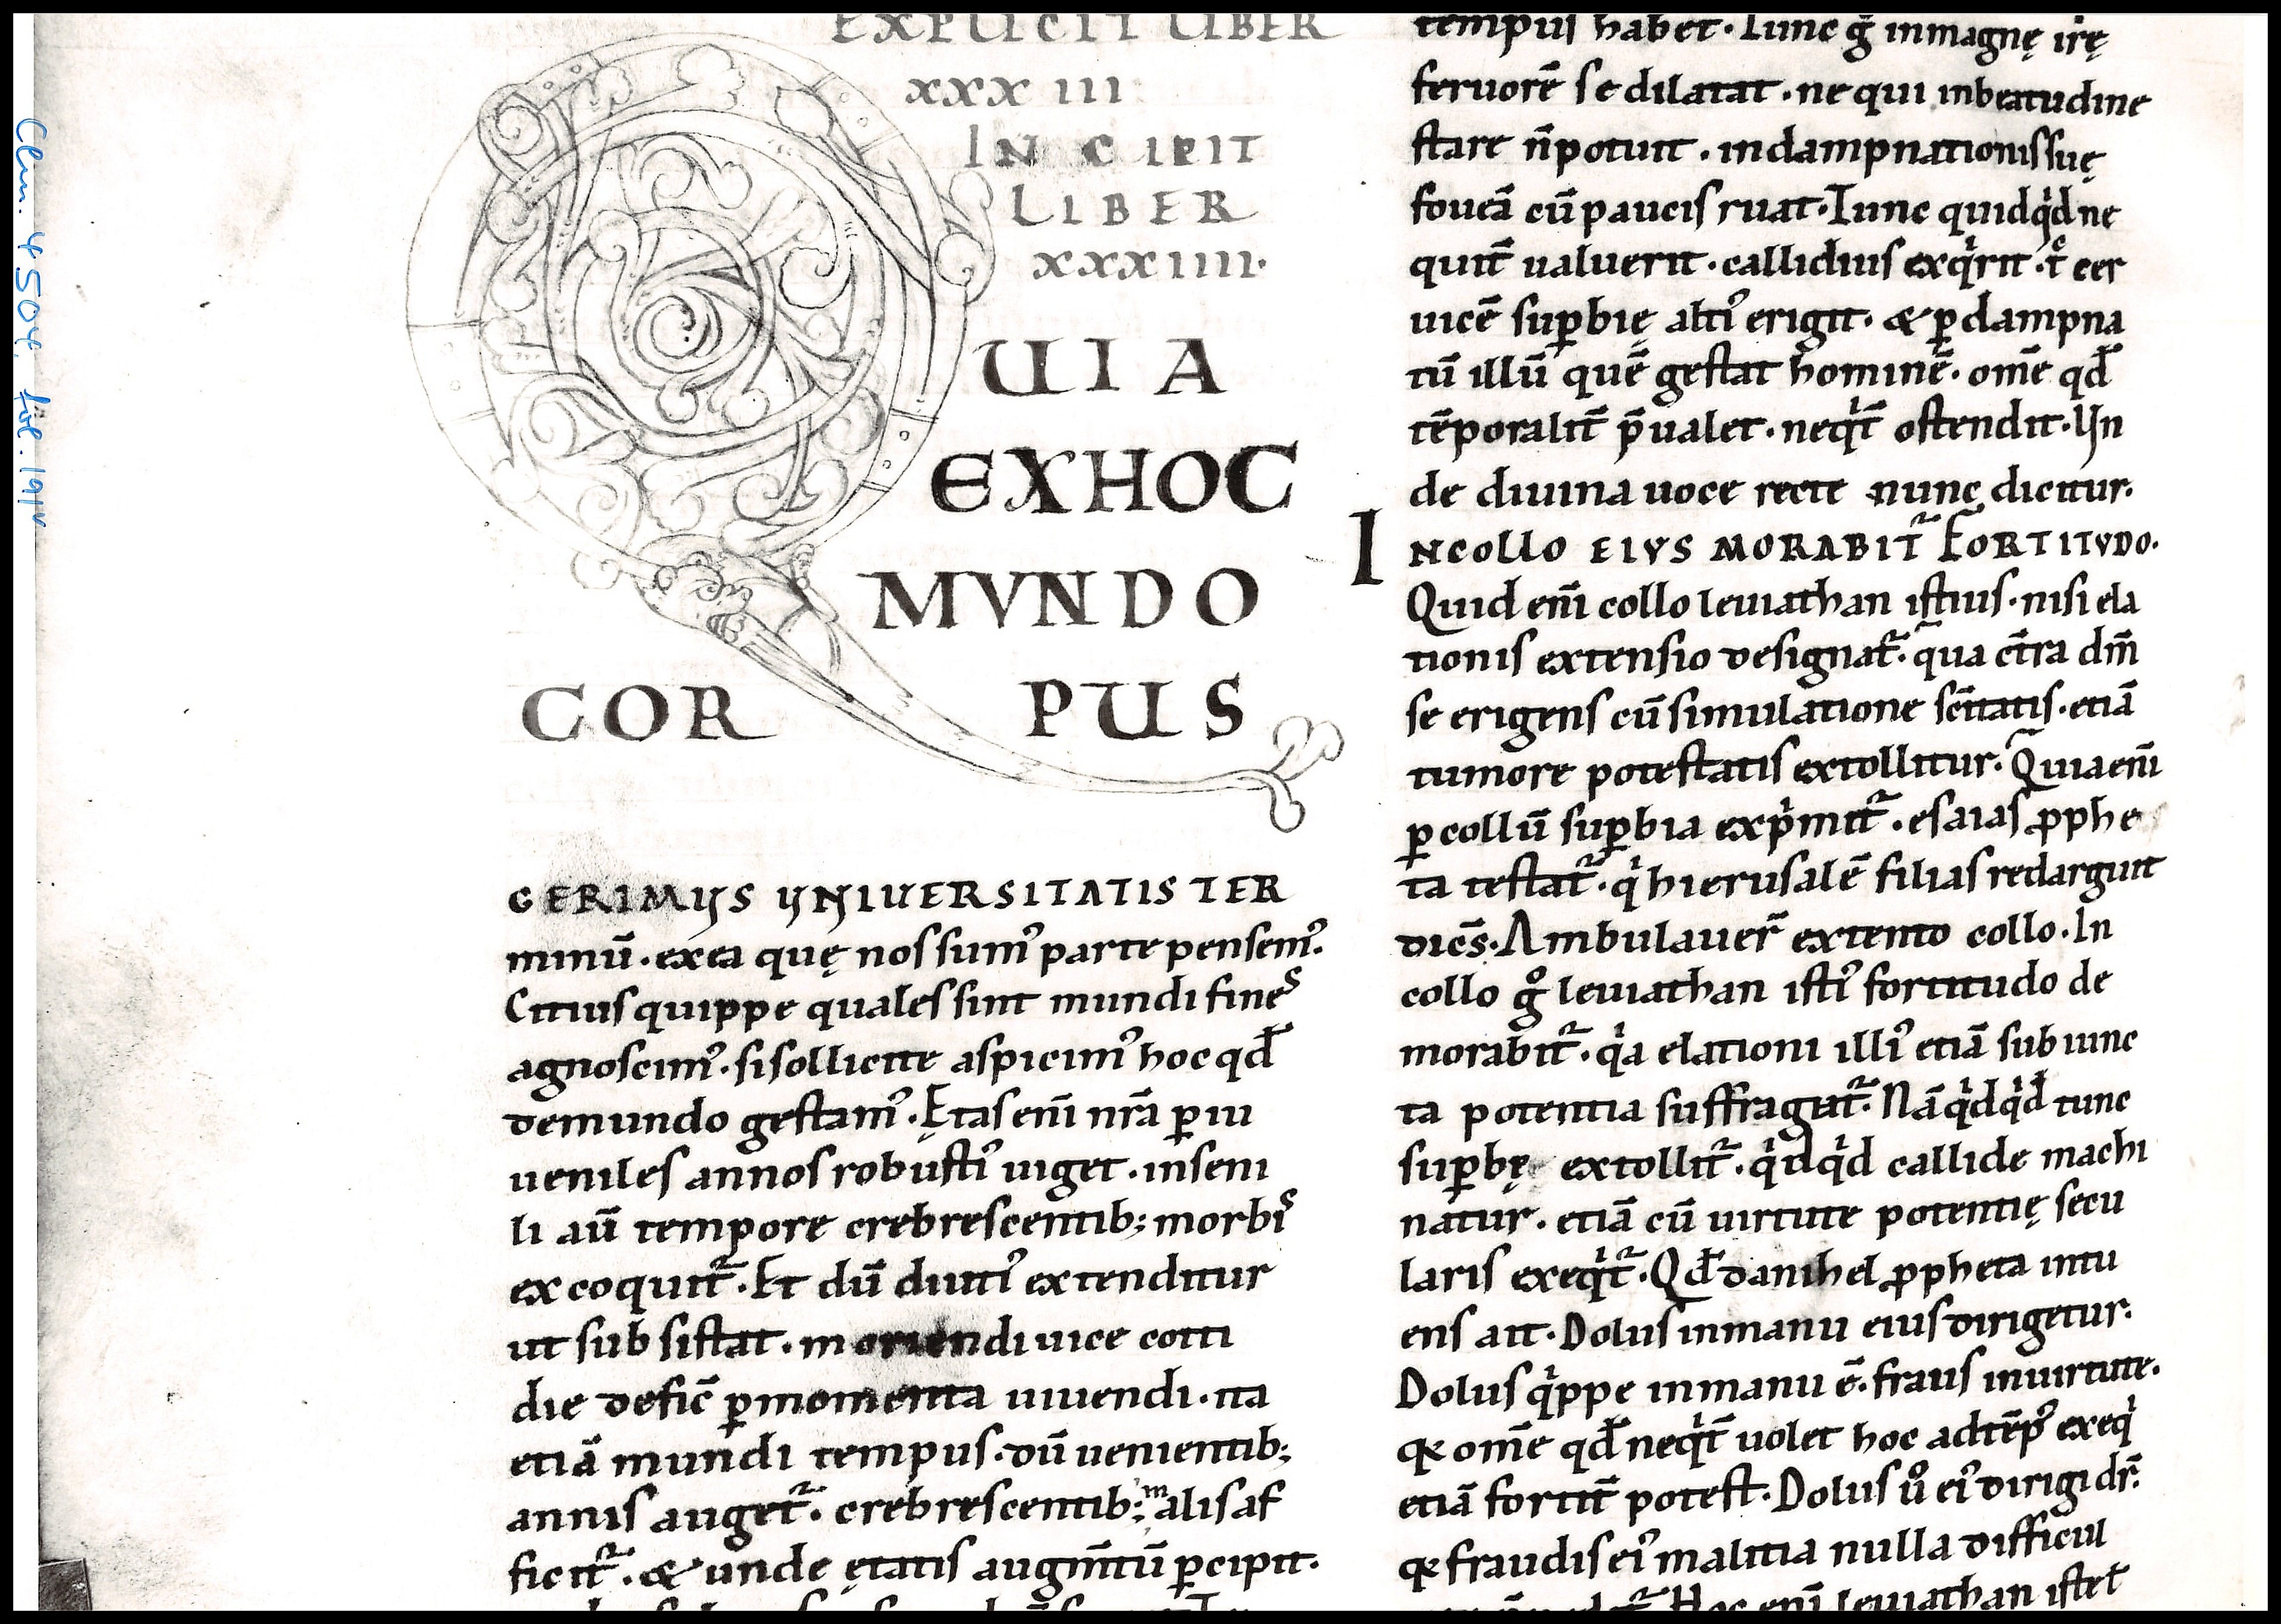 Clm. 4504, fol. 191v
EXPLICIT LIBER
XXXIII
INCIPIT
LIBER
XXXIIII·
QUIA
EXHOC
MVNDO
CORPUS
GERIMUS UNIUERSITATIS TER
minū·exea quę nos sumꝰ parte pensemꝰ.
Citius quippe quales sint mundi fines
agnoscimꝰ·si sollicite aspicimꝰ hoc qđ
demundo gestamꝰ·Ętas eni̅ nr̅a ꝑ iu
ueniles annos robustiꝰ uiget·inseni
li au̅ tempore crebrescentib; morbis
excoquit᷑·Et dū diutiꝰ extenditur
ut subsistat·moriendi uice cotti
die defic̅ ꝑmomenta uiuendi·ita
etiā mundi tempus·dū uenientib;
annis auget᷑·crebrescentib; malis af
ficit᷑·& unde ętatis augm̅tū ꝑcipit·
tempus habet·Tunc g̊ inmagnę irę
feruorē se dilatat·ne qui inbeatudine
stare n̅potuit·indampnationis suę
foueā cū paucis ruat·Tunc quidqͥd ne
quit̅ ualuerit·callidius exqͥrit·tͨ cer
uicē suꝑbię altiꝰ erigit·& ꝑ dampna
tū illū quē gestat hominē·om̅e qđ
tēporalit̅ p̅ualet·neqͥt̅ ostendit·Un
de diuina uoce recte nunc dicitur·
INCOLLO EIVS MORABIT᷑ FORTITVDO·
Quid eni̅ collo leuiathan istius·nisi ela
tionis extensio designat᷑·qua ct̅ra dm̅
se erigens cū simulatione sc̅itatis·etiā
tumore potestatis extollitur·Quia eni̅
ꝑ collū suꝑbia expͥmit᷑·esaias ꝓphe
ta testat᷑·qͥ hierusalē filias redarguit
dicēs·Ambulauer̅ extento collo·In
collo g̊ leuiathan istiꝰ fortitudo de
morabit᷑·qͥa elationi illiꝰ etiā subiunc
ta potentia suffragat᷑·Nā qͥdqͥd tunc
suꝑbę extollit᷑·qͥdqͥd callide machi
natur·etiā cū uirtute potentię secu
laris exeqͥt᷑·Qđ danihel ꝓpheta intu
ens ait·Dolus inmanu eius dirigetur·
Dolus qͥppe inmanu ē·fraus inuirtute·
qꝛ om̅e qđ neqͥt̅ uolet hoc adtēpꝰ exeqͥ
etiā fortit̅ potest·Dolus ů eiꝰ dirigi dr̅·
qꝛ fraudis eiꝰ malitia nulla difficul
Hoc eni̅ leuiathan iste